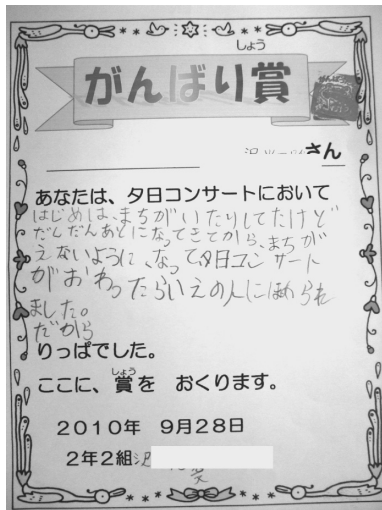 しょう
がんばり賞
さん
あなたは、夕日コンサートにおいて
はじめは、まちがいたりしてたけど
だんだんあとになってきてから、まちが
えないように、なって夕日コンサート
がおわったらいえの人にほめられ
ました。
だから
りっぱでした。
しょう
ここに、賞を おくります。
2010年 9月28日
2年2組